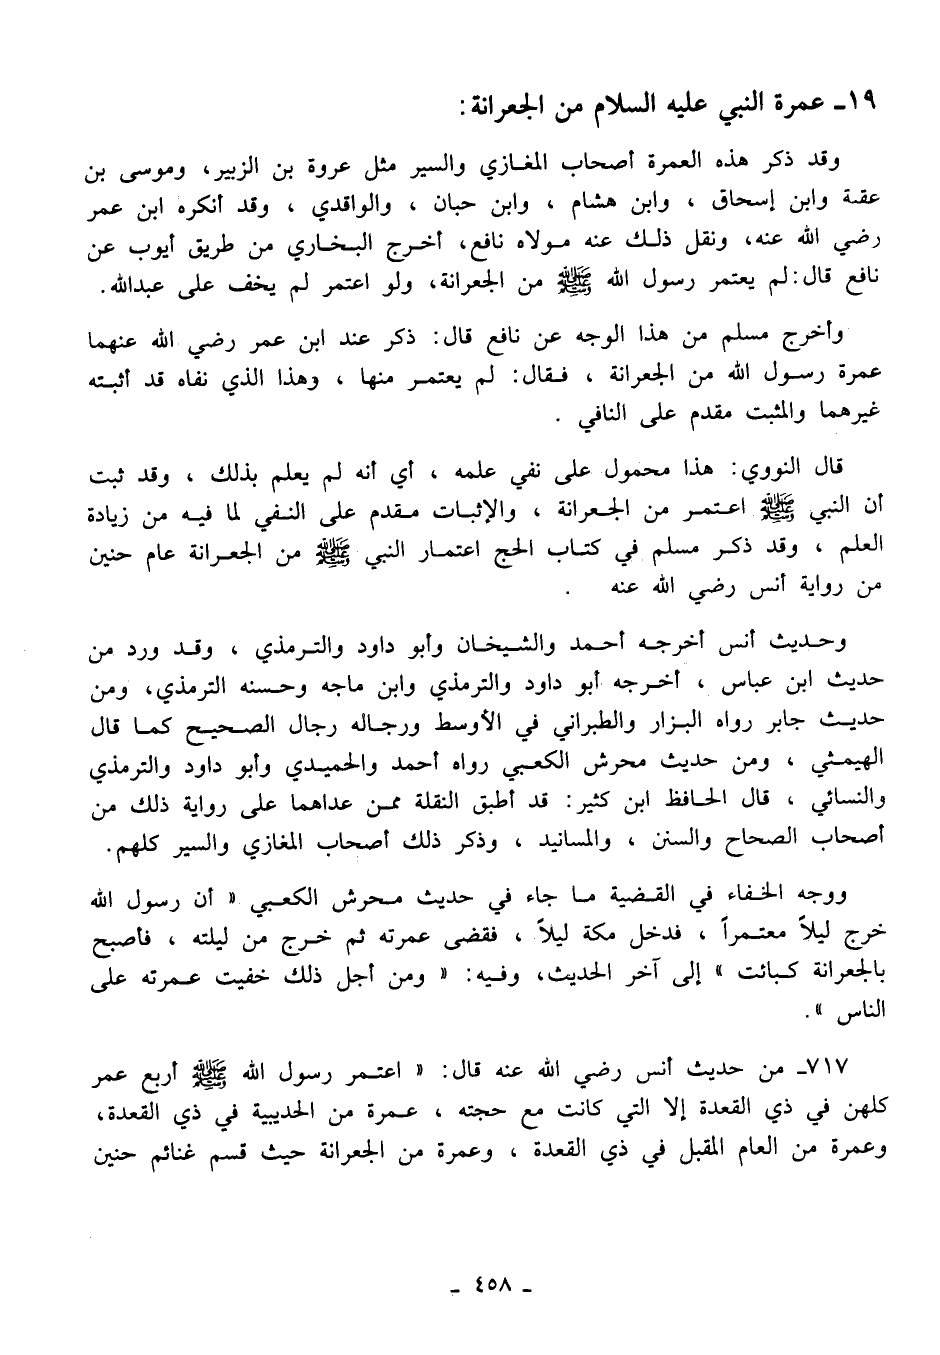 ١٩ـ عمرة النبي عليه السلام من الجعرانة:
وقد ذكر هذه العمرة أصحاب المغازي والسير مثل عروة بن الزبير، وموسى بن
عقبة وابن إسحاق ، وابن هشام ، وابن حبان ، والواقدي ، وقد أنكره ابن عمر
رضي الله عنه، ونقل ذلك عنه مولاه نافع، أخرج البخاري من طريق أيوب عن
نافع قال: لم يعتمر رسول الله ﷺ من الجعرانة، ولو اعتمر لم يخف على عبدالله.
وأخرج مسلم من هذا الوجه عن نافع قال: ذكر عند ابن عمر رضي الله عنهما
عمرة رسول الله من الجعرانة ، فقال: لم يعتمر منها ، وهذا الذي نفاه قد أثبته
غيرهما والمثبت مقدم على النافي .
قال النووي: هذا محمول على نفي علمه ، أي أنه لم يعلم بذلك ، وقد ثبت
أن النبي ﷺ اعتمر من الجعرانة ، والإثبات مقدم على النفي لما فيه من زيادة
العلم ، وقد ذكر مسلم في كتاب الحج اعتمار النبي ﷺ من الجعرانة عام حنين
من رواية أنس رضي الله عنه .
وحديث أنس أخرجه أحمد والشيخان وأبو داود والترمذي ، وقد ورد من
حديث ابن عباس ، أخرجه أبو داود والترمذي وابن ماجه وحسنه الترمذي، ومن
حديث جابر رواه البزار والطبراني في الأوسط ورجاله رجال الصحيح كما قال
الهيمثي ، ومن حديث محرش الكعبي رواه أحمد والحميدي وأبو داود والترمذي
والنسائي ، قال الحافظ ابن كثير: قد أطبق النقلة ممن عداهما على رواية ذلك من
أصحاب الصحاح والسنن ، والمسانيد ، وذكر ذلك أصحاب المغازي والسير كلهم.
ووجه الخفاء في القضية ما جاء في حديث محرش الكعبي « أن رسول الله
خرج ليلاً معتمراً ، فدخل مكة ليلاً ، فقضى عمرته ثم خرج من ليلته ، فأصبح
بالجعرانة كبائت » إلى آخر الحديث، وفيه: « ومن أجل ذلك خفيت عمرته على
الناس ».
٧١٧ـ من حديث أنس رضي الله عنه قال: « اعتمر رسول الله ﷺ أربع عمر
كلهن في ذي القعدة إلا التي كانت مع حجته ، عمرة من الحديبية في ذي القعدة،
وعمرة من العام المقبل في ذي القعدة ، وعمرة من الجعرانة حيث قسم غنائم حنين
ـ ٤٥٨ ـ